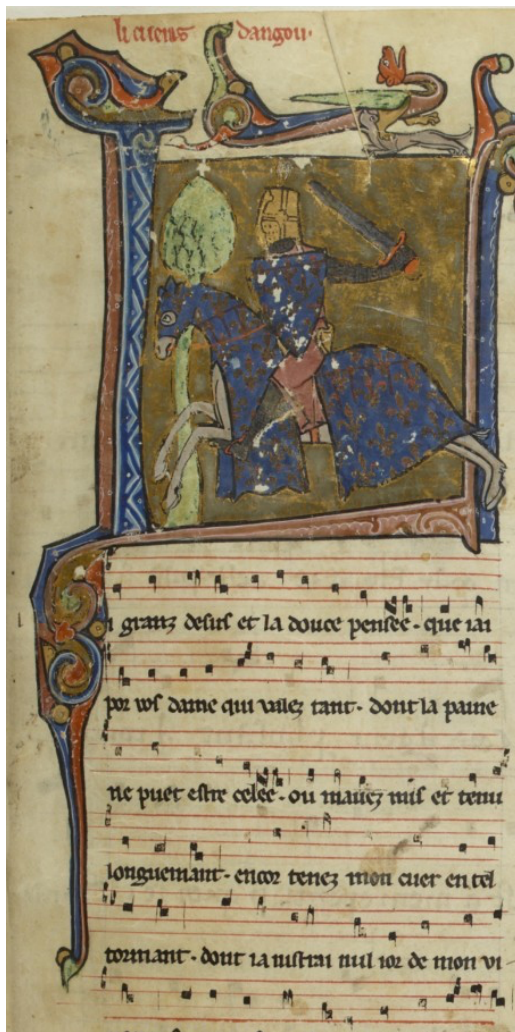 li cuens dangou.
i granz desirs et la douce pensee. que iai
por vos dame qui valez tant. dont la paine
ne puet estre celee. ou mauez mis et tenu
longuemant. encor tenez mon cuer en tel
tormant. dont ia nistrai nul ior de mon vi